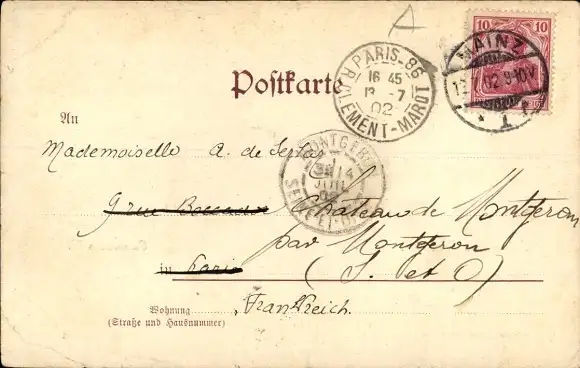 A
10 10
MAINZ
12 02 9-10V
* 1 *
PARIS-86
16 45
13 -7
02
R. CLEMENT-MAROT
Postkarte
An
Mademoiselle A. de
MONTGERON
14
SEINE-ET-OISE
9 rue Boccador Château de Montgeron
par Montgeron
in Paris (S. et O)
Frankreich.
Wohnung
(Straße und Hausnummer)